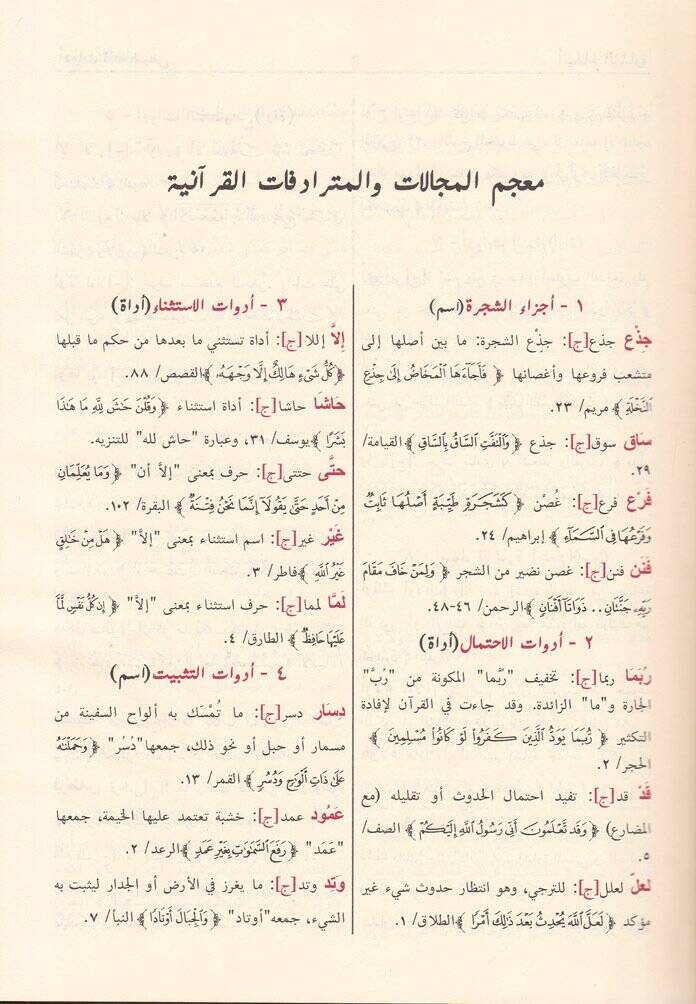 معجم المجالات والمترادفات القرآنية
١ - أجزاء الشجرة (اسم)
جِذْع جذع[ج]: جِذْع الشجرة: ما بين أصلها إلى
متشعب فروعها وأغصانها ﴿ فَأَجَآءَهَا ٱلْمَخَاضُ إِلَىٰ جِذْعِ
ٱلنَّخْلَةِ ﴾ مريم/ ٢٣.
ساق سوق[ج]: جذع ﴿ وَٱلْتَفَّتِ ٱلسَّاقُ بِٱلسَّاقِ ﴾ القيامة/
٢٩.
فَرْع فرع[ج]: غُصْن ﴿ كَشَجَرَةٍ طَيِّبَةٍ أَصْلُهَا ثَابِتٌ
وَفَرْعُهَا فِي ٱلسَّمَآءِ ﴾ إبراهيم/ ٢٤.
فَنَن فنن[ج]: غصن نضير من الشجر ﴿ وَلِمَنْ خَافَ مَقَامَ
رَبِّهِۦ جَنَّتَانِ .. ذَوَاتَآ أَفْنَانٍ ﴾ الرحمن/ ٤٦-٤٨.
٢ - أدوات الاحتمال (أداة)
رُبَمَا ربما[ج]: تخفيف "رُبَّما" المكونة من "رُبَّ"
الجارة و"ما" الزائدة. وقد جاءت في القرآن لإفادة
التكثير ﴿ رُّبَمَا يَوَدُّ ٱلَّذِينَ كَفَرُوا۟ لَوْ كَانُوا۟ مُسْلِمِينَ ﴾
الحجر/ ٢.
قَدْ قد[ج]: تفيد احتمال الحدوث أو تقليله (مع
المضارع) ﴿ وَقَد تَّعْلَمُونَ أَنِّي رَسُولُ ٱللَّهِ إِلَيْكُمْ ﴾ الصف/
٥.
لَعَلّ لعلل[ج]: للترجي، وهو انتظار حدوث شيء غير
مؤكد ﴿ لَعَلَّ ٱللَّهَ يُحْدِثُ بَعْدَ ذَٰلِكَ أَمْرًا ﴾ الطلاق/ ١.
٣ - أدوات الاستثناء (أداة)
إلاَّ إللا[ج]: أداة تستثني ما بعدها من حكم ما قبلها
﴿ كُلُّ شَىْءٍ هَالِكٌ إِلَّا وَجْهَهُۥ ﴾ القصص/ ٨٨.
حَاشَا حاشا[ج]: أداة استثناء ﴿ وَقُلْنَ حَٰشَ لِلَّهِ مَا هَٰذَا
بَشَرًا ﴾ يوسف/ ٣١، وعبارة "حاش لله" للتنزيه.
حَتَّى حتتى[ج]: حرف بمعنى "إلاَّ أن" ﴿ وَمَا يُعَلِّمَانِ
مِنْ أَحَدٍ حَتَّىٰ يَقُولَآ إِنَّمَا نَحْنُ فِتْنَةٌ ﴾ البقرة/ ١٠٢.
غَيْر غير[ج]: اسم استثناء بمعنى "إلاَّ" ﴿ هَلْ مِنْ خَٰلِقٍ
غَيْرُ ٱللَّهِ ﴾ فاطر/ ٣.
لَمَّا لمما[ج]: حرف استثناء بمعنى "إلاَّ" ﴿ إِن كُلُّ نَفْسٍ لَّمَّا
عَلَيْهَا حَافِظٌ ﴾ الطارق/ ٤.
٤ - أدوات التثبيت (اسم)
دِسَار دسر[ج]: ما تُمْسَك به ألواح السفينة من
مسمار أو حبل أو نحو ذلك، جمعها"دُسُر" ﴿ وَحَمَلْنَٰهُ
عَلَىٰ ذَاتِ أَلْوَٰحٍ وَدُسُرٍ ﴾ القمر/ ١٣.
عَمُود عمد[ج]: خشبة تعتمد عليها الخيمة، جمعها
"عَمَد" ﴿ رَفَعَ ٱلسَّمَٰوَٰتِ بِغَيْرِ عَمَدٍ ﴾ الرعد/ ٢.
وتِد وتد[ج]: ما يغرز في الأرض أو الجدار ليثبت به
الشيء، جمعه"أوتاد" ﴿ وَٱلْجِبَالَ أَوْتَادًا ﴾ النبأ/ ٧.